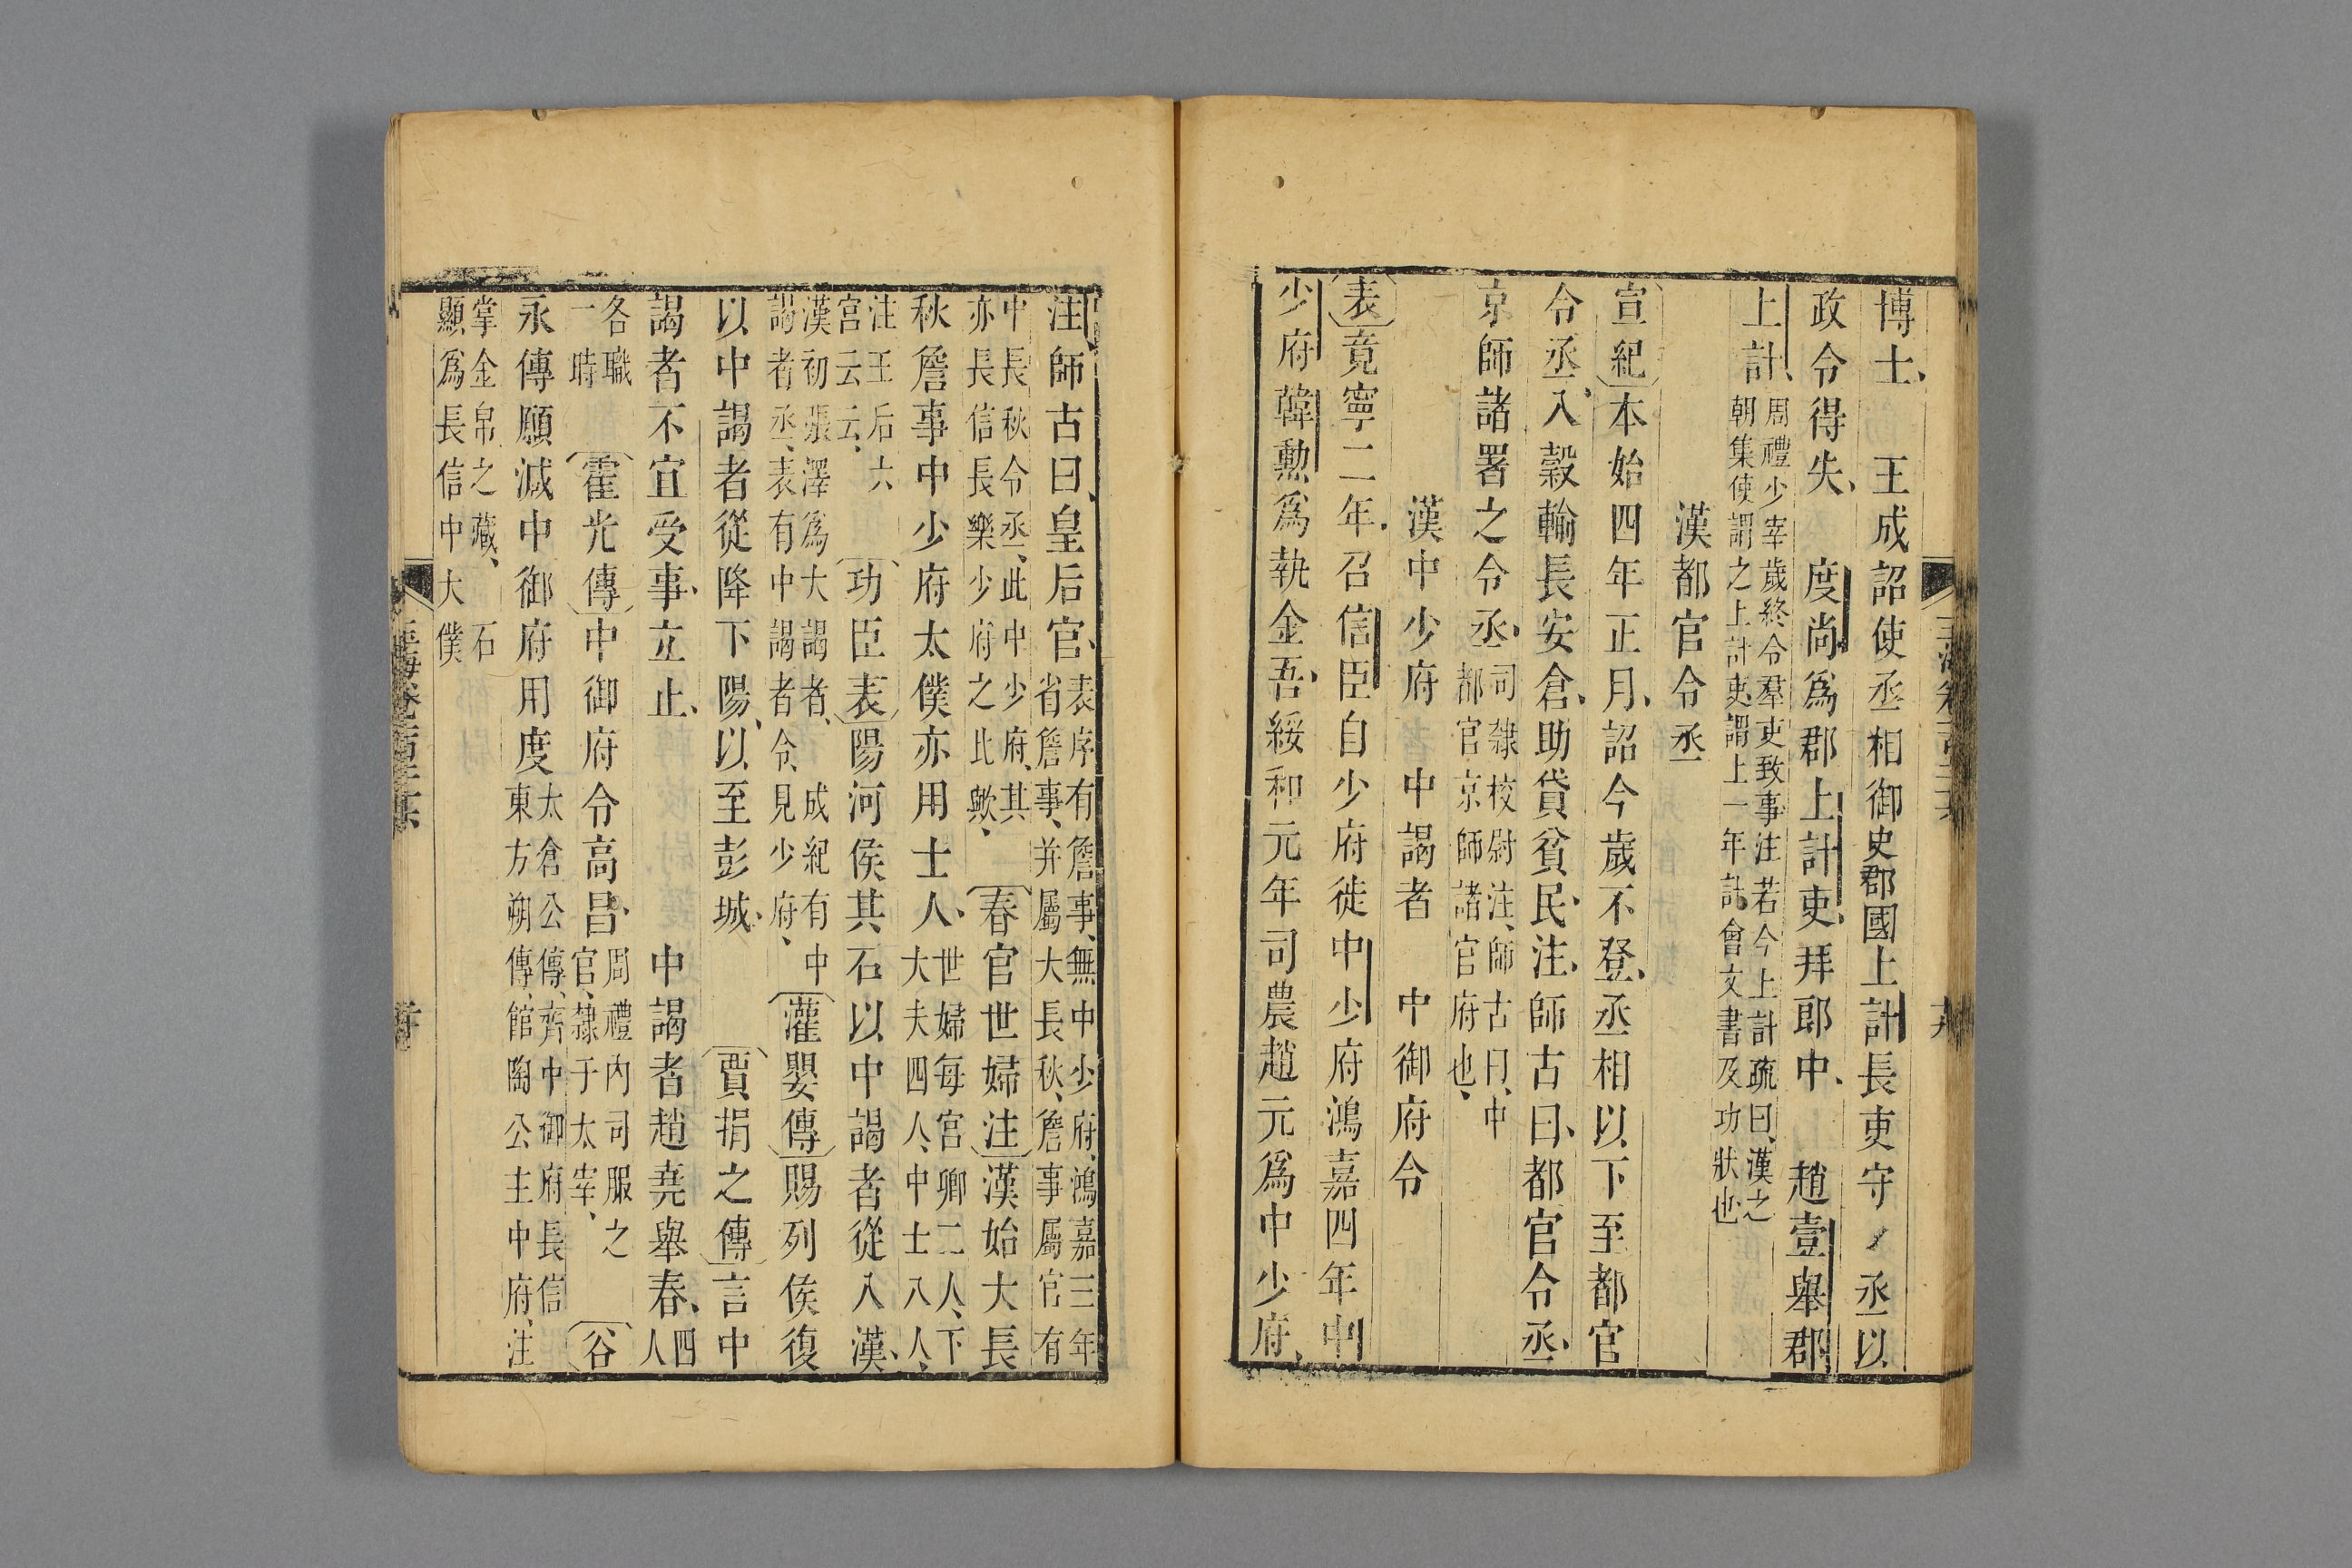 博士王成詔使丞相御史郡國上計長吏守丞以
政令得失度尚爲郡上計吏拜郎中趙壹舉郡
上計周禮少宰歲終令羣吏致事注若今上計疏曰漢之
朝集使謂之上計吏謂上一年計會文書及功狀也
漢都官令丞
宣紀本始四年正月詔今歲不登丞相以下至都官
令丞入穀輸長安倉助貸貧民注師古曰都官令丞
京師諸署之令丞司隸校尉注師古曰中
都官京師諸官府也
漢中少府中謁者中御府令
表竟寧二年召信臣自少府徙中少府鴻嘉四年中
少府韓勳爲執金吾綏和元年司農趙元爲中少府
注師古曰皇后官表序有詹事無中少府鴻嘉三年
省詹事并屬大長秋詹事屬官有
中長秋令丞此中少府其
亦長信長樂少府之比歟春官世婦注漢始大長
秋詹事中少府太僕亦用士人世婦每宮卿二人下
大夫四人中士八人
注王后六
宮云云功臣表陽河侯其石以中謁者從入漢
漢初張澤爲大謁者成紀有中
謁者丞表有中謁者令見少府灌嬰傳賜列侯復
以中謁者從降下陽以至彭城賈捐之傳言中
謁者不宜受事立止中謁者趙堯舉春四
人
各職
一時霍光傳中御府令高昌周禮内司服之
官隸于太宰谷
永傳願減中御府用度太倉公傳齊中御府長信
東方朔傳館陶公主中府注
掌金帛之藏石
顯爲長信中大僕